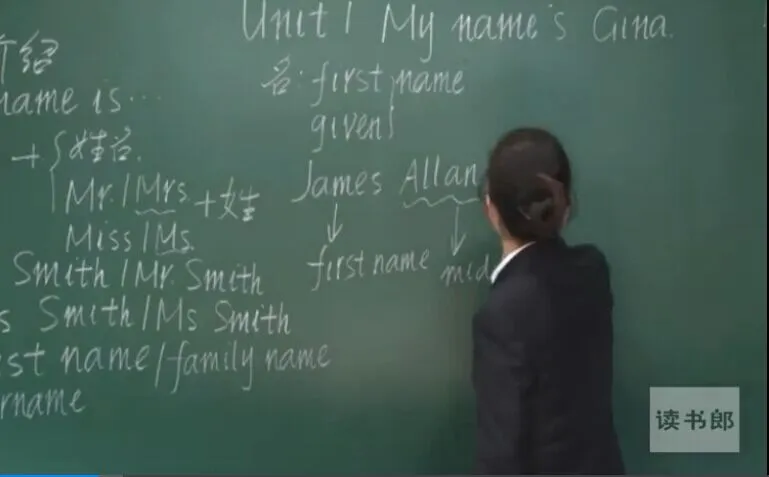 Unit 1 My name's Gina.
介绍
name is ...
+ { 姓名.
Mr. / Mrs + 姓
Miss / Ms.
Smith / Mr. Smith
s Smith / Ms Smith
st name / family name
rname
名: first name
given
James Allan
↓ ↓
first name mid
读书郎